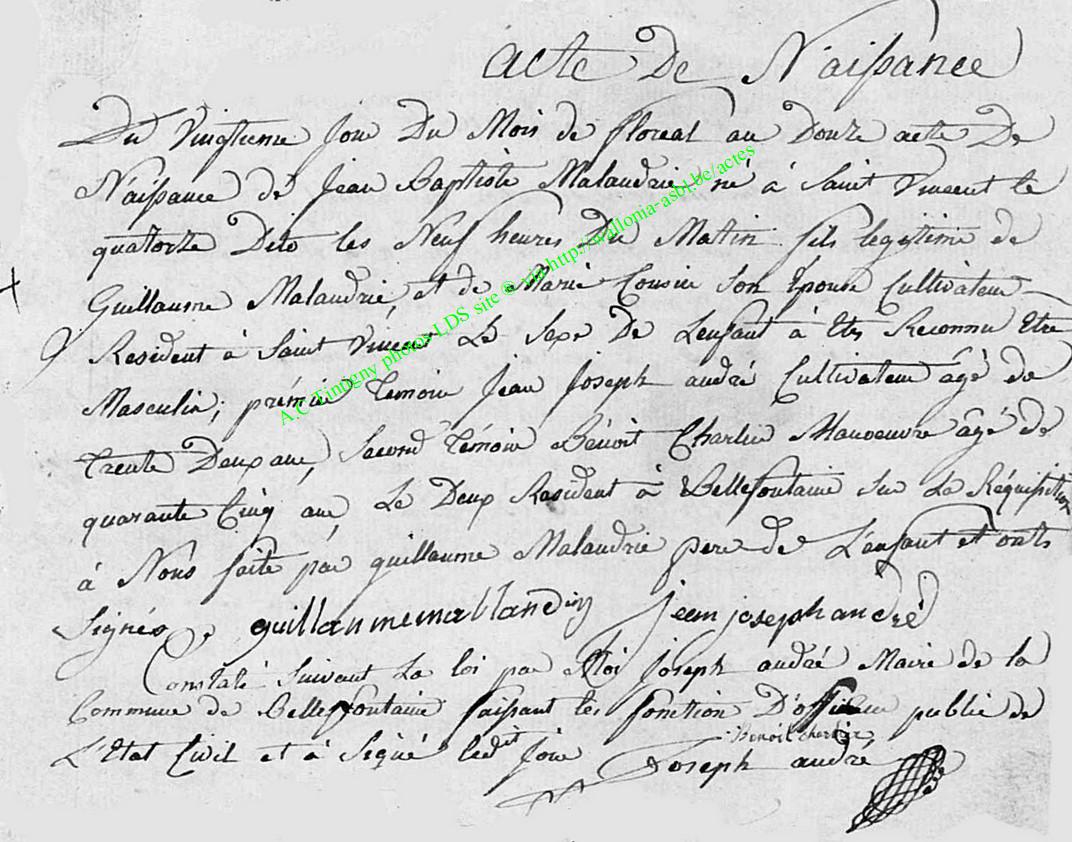 Acte De Naissance
Du Vingtieme Jour Du Mois de floreal an Douze acte De
Naissance de Jean Baptiste Malaudrie né à Saint Vincent le
quatorze Dito les Neuf heures Du Mattin fils legitime de
Guillaume Malaudrie et de Marie Cousin Son Epouse Cultivateur
Resident à Saint Vincent Le Sexe De Lenfant à Etés Reconnu Etre
Masculin; prémier Temoin Jean Joseph andré Cultivateur âgé de
trente Deux ans, Second Témoin Bénoit Charlier Manoeuvre âgé de
quarante Cinq ans Le Deux Resident à Bellefontaine Sur La Réquisition
à Nous faite par guillaume Malaudrie pere de L'enfant et onts
Signés guillaumemallandrin jean joseph andré
Constaté Suivant La loi par Moi Joseph andré Maire de la
Commune de Bellefontaine faissant les fonction D'officier public de
Benoit Charlier
L'Etat Civil et à Signé ledit Jour Joseph andré
A.C Tintigny photos LDS site @ via http://wallonia-asbl.be/actes